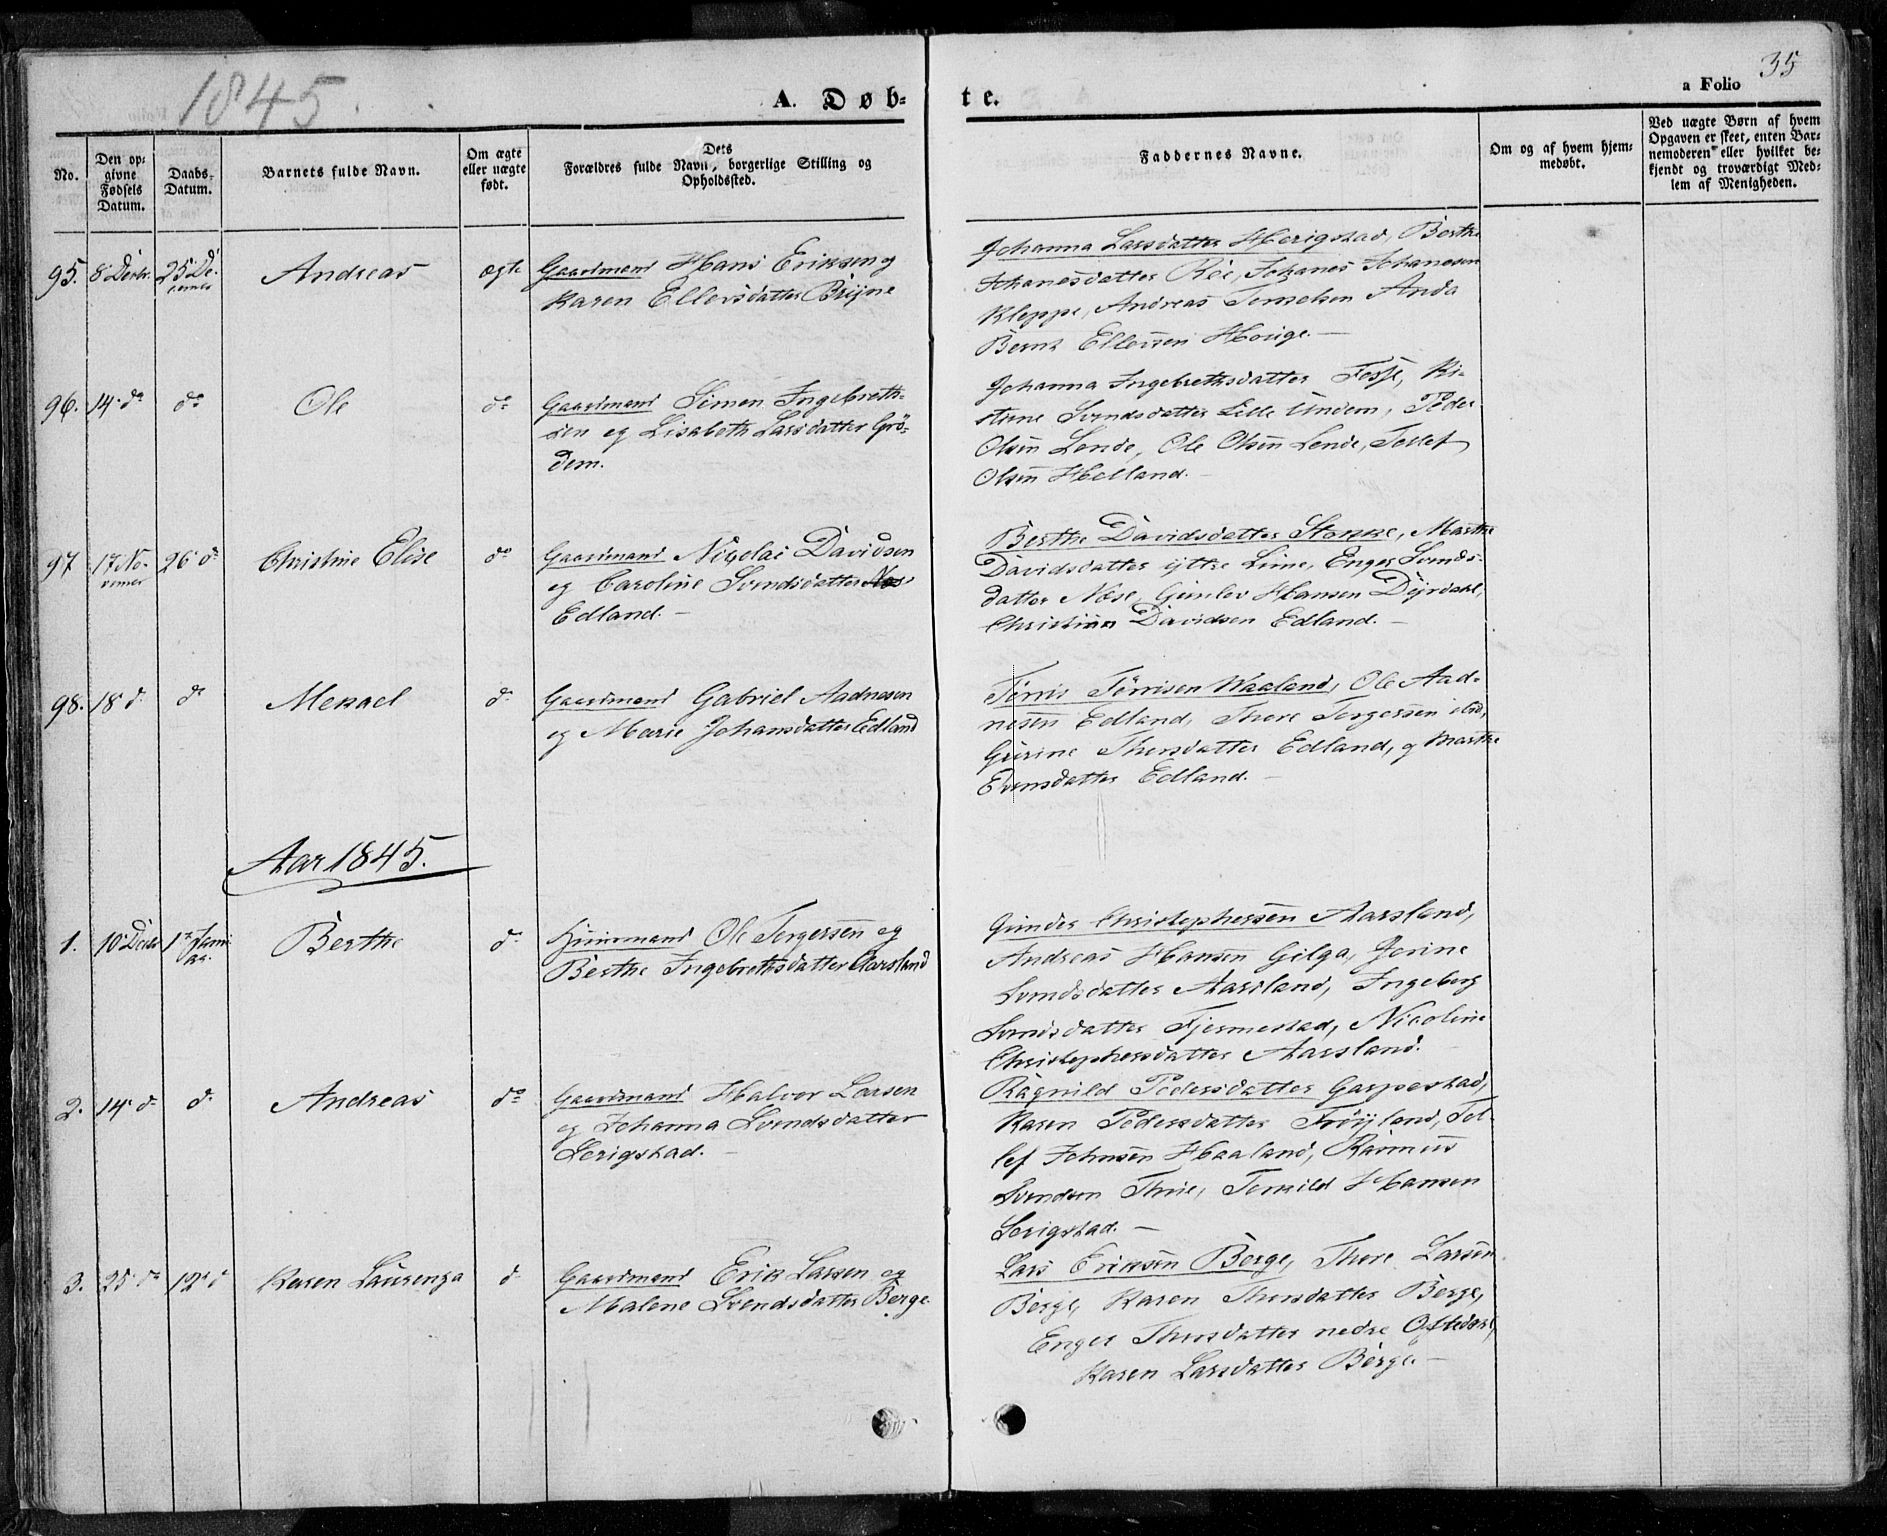 1845.
35
A. Døb-
te.
a Folio
No.
Den op-
givne
Fødsels
Datum.
Daabs-
Datum.
Barnets fulde Navn.
Om ægte
eller uægte
født.
Dets
Forældres fulde Navn, borgerlige Stilling og
Opholdssted.
Faddernes Navne.
Om og af hvem hjem-
medøbt.
Ved uægte Børn af hvem
Opgaven er skeet, enten Bar-
nemoderen eller hvilket be-
kjendt og troværdigt Med-
lem af Menigheden.
95. 8 Decbr. 25 De-
cember
Andreas
ægte
Gaardmand Hans Eriksen og
Karen Ellersdatter Bryne
Johanna Larsdatter Herigstad, Berthe
Johanesdatter Ree, Johanes Johanesen
Kleppe, Andreas Tonnesen Anda
Bernt Ellersen Hørige. —
96. 14 do do Ole do
Gaardmand Simon Ingebreth-
sen og Lisabeth Larsdatter Grö-
dem.
Johanna Ingebrethsdatter Fosse, Ki-
stine Svendsdatter Lille Undem, Peder
Olsen Lende, Ole Olsen Lende, Tollef
Olsen Helland. —
97 17 No-
vember
26 do
Christine Elise
do
Gaardmand Nicolai Davidsen
og Caroline Svendsdatter
Edland. —
Berthe Davidsdatter Stokke, Marthe
Davidsdatter ytre Lime, Enger Svends-
datter Næse, Gunlev Hansen Dyrdahl,
Christian Davidsen Edland. —
98. 18 d. do Mekael d.
Gaardmand Gabriel Aadnesen
og Marie Johansdatter Edland
Törris Törrisen Waaland, Ole Aad-
nesen Edland, Thore Torgersen ibid,
Gurine Thorsdatter Edland, og Marthe
Evensdatter Edland. —
Aar 1845.
1. 10 Decbr 1te Janu
ar.
Berthe
d.
Huusmand Ole Torgersen og
Berthe Ingebrethsdatter Aarsland
Gunder Christophersen Aarsland,
Andreas Hansen Gilga, Jorine
Svendsdatter Aarsland, Ingeborg
Svendsdatter Fjermestad, Nicoline
Christophersdatter Aarsland.
2. 14 d. d. Andreas do
Gaardmand Halvor Larsen
og Johanna Svendsdatter
Serigstad. —
Ragnild Pedersdatter Garpestad,
Karen Pedersdatter Fröyland, Tol-
lef Johnsen Haaland, Rasmus
Svendsen Thue, Torkild Hansen
Serigstad. —
3. 25 do 12 d Karen Laurenza d.
Gaardmand Erik Larsen og
Malene Svendsdatter Berge
Lars Eriksen Berge, Thore Larsen
Berge, Karen Thorsdatter Berge,
Enger Thorsdatter nedre Oftedahl,
Karen Larsdatter Berge. —